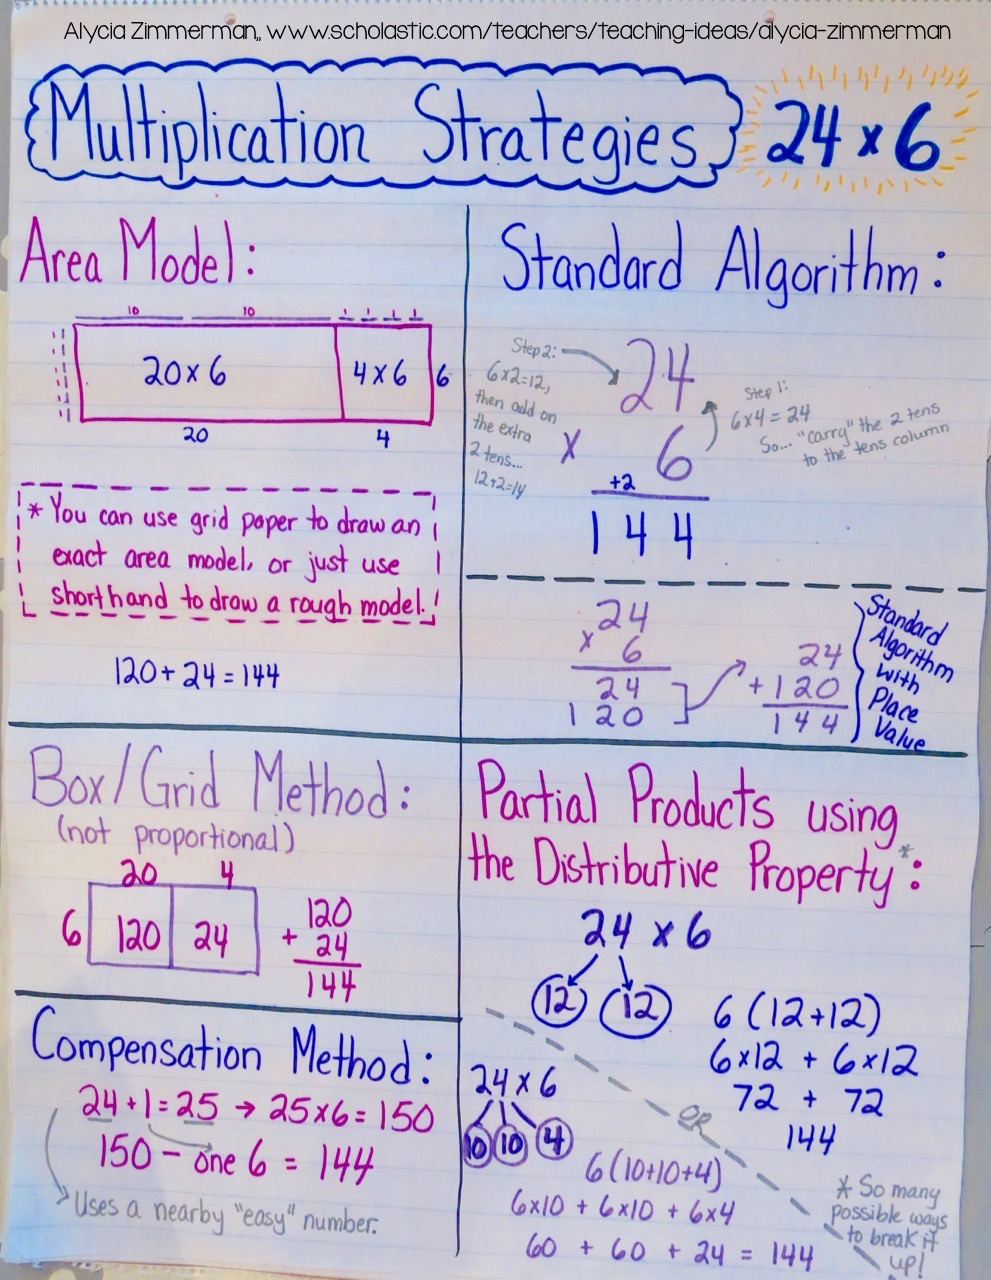 Alycia Zimmerman,, www.scholastic.com/teachers/teaching-ideas/alycia-zimmerman
Multiplication Strategies
24 x 6
Area Model:
10 10 1 1 1 1
20 x 6 4 x 6 6
20 4
* You can use grid paper to draw an
exact area model, or just use
shorthand to draw a rough model.
120 + 24 = 144
Standard Algorithm:
Step 2:
6x2=12,
then add on
the extra
2 tens...
12+2=14
24
x 6
+2
144
Step 1:
6x4 = 24
So... "carry" the 2 tens
to the tens column
24
x 6
24
120
24
+120
144
Standard
Algorithm
with
Place
Value
Box/Grid Method:
(not proportional)
20 4
6 120 24
120
+ 24
144
Compensation Method:
24 + 1 = 25 → 25 x 6 = 150
150 - one 6 = 144
Uses a nearby "easy" number.
Partial Products using
the Distributive Property*:
24 x 6
12 12
6 (12+12)
6x12 + 6x12
72 + 72
144
OR
24 x 6
10 10 4
6 (10+10+4)
6x10 + 6x10 + 6x4
60 + 60 + 24 = 144
* So many
possible ways
to break it
up!